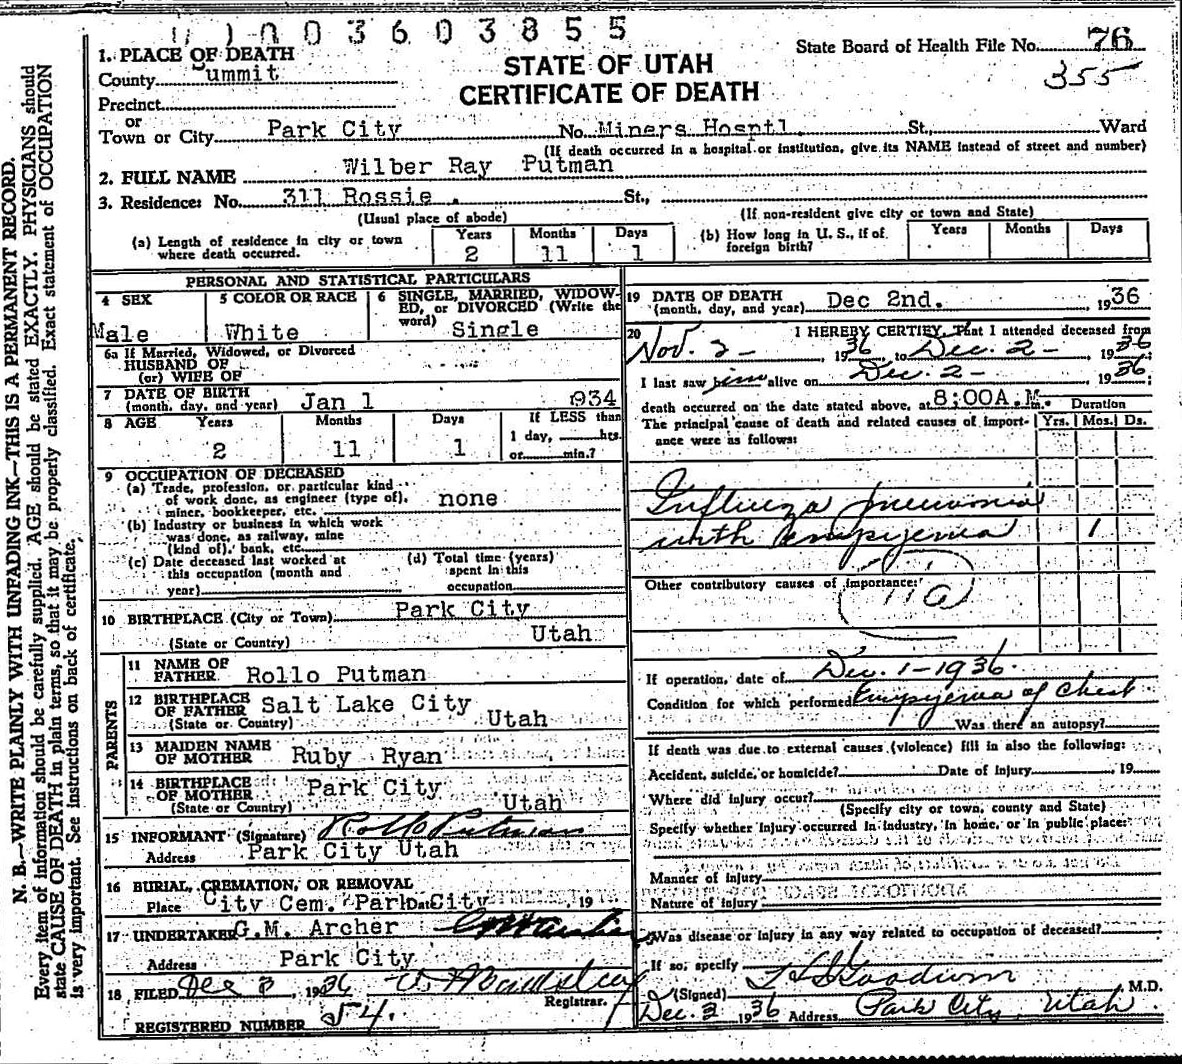 0 0 3 6 0 3 8 5 5
State Board of Health File No. 76
355
1. PLACE OF DEATH
County Summit
STATE OF UTAH
CERTIFICATE OF DEATH
Precinct
or
Town or City Park City No. Miners Hosptl. St., Ward
(If death occurred in a hospital or institution, give its NAME instead of street and number)
2. FULL NAME Wilber Ray Putman
3. Residence: No. 311 Rossie. St.,
(Usual place of abode) (If non-resident give city or town and State)
(a) Length of residence in city or town where death occurred. Years 2 Months 11 Days 1
(b) How long in U. S., if of foreign birth? Years Months Days
PERSONAL AND STATISTICAL PARTICULARS
4 SEX Male
5 COLOR OR RACE White
6 SINGLE, MARRIED, WIDOWED, OR DIVORCED (Write the word) Single
6a If Married, Widowed, or Divorced
HUSBAND OF
(or) WIFE OF
7 DATE OF BIRTH
(month, day, and year) Jan 1 1934
8 AGE Years 2 Months 11 Days 1 If LESS than 1 day, hrs. or min.?
9 OCCUPATION OF DECEASED
(a) Trade, profession, or particular kind
of work done, as engineer (type of),
miner, bookkeeper, etc. none
(b) Industry or business in which work
was done, as railway, mine
(kind of), bank, etc.
(c) Date deceased last worked at
this occupation (month and
year)
(d) Total time (years)
spent in this
occupation
10 BIRTHPLACE (City or Town) Park City
(State or Country) Utah
PARENTS
11 NAME OF FATHER Rollo Putman
12 BIRTHPLACE OF FATHER Salt Lake City
(State or Country) Utah
13 MAIDEN NAME OF MOTHER Ruby Ryan
14 BIRTHPLACE OF MOTHER Park City
(State or Country) Utah
15 INFORMANT (Signature) Rollo Putman
Address Park City Utah
16 BURIAL, CREMATION, OR REMOVAL
Place City Cem. Park City Date 19
17 UNDERTAKER G.M. Archer
Address Park City
18 FILED Dec 3, 1936
Registrar.
REGISTERED NUMBER 54.
19 DATE OF DEATH
(month, day, and year) Dec 2nd. 1936
20 I HEREBY CERTIFY, That I attended deceased from
Nov. 2 - , 1936, to Dec. 2 - , 1936;
I last saw him alive on Dec. 2 - 1936;
death occurred on the date stated above, at 8:00A.M. Duration
The principal cause of death and related causes of importance were as follows: Yrs. Mos. Ds.
Influenza pneumonia
with empyema 1
Other contributory causes of importance:
11a
If operation, date of Dec. 1-1936.
Condition for which performed Empyema of Chest
Was there an autopsy?
If death was due to external causes (violence) fill in also the following:
Accident, suicide, or homicide? Date of injury 19
Where did injury occur?
(Specify city or town, county and State)
Specify whether injury occurred in industry, in home, or in public place:
Manner of injury
Nature of injury
Was disease or injury in any way related to occupation of deceased?
If so, specify
(Signed) Goodwin, M.D.
Dec. 3 1936 Address Park City, Utah
N. B.—WRITE PLAINLY WITH UNFADING INK—THIS IS A PERMANENT RECORD.
Every item of information should be carefully supplied. AGE should be stated EXACTLY. PHYSICIANS should
state CAUSE OF DEATH in plain terms, so that it may be properly classified. Exact statement of OCCUPATION
is very important. See instructions on back of certificate.